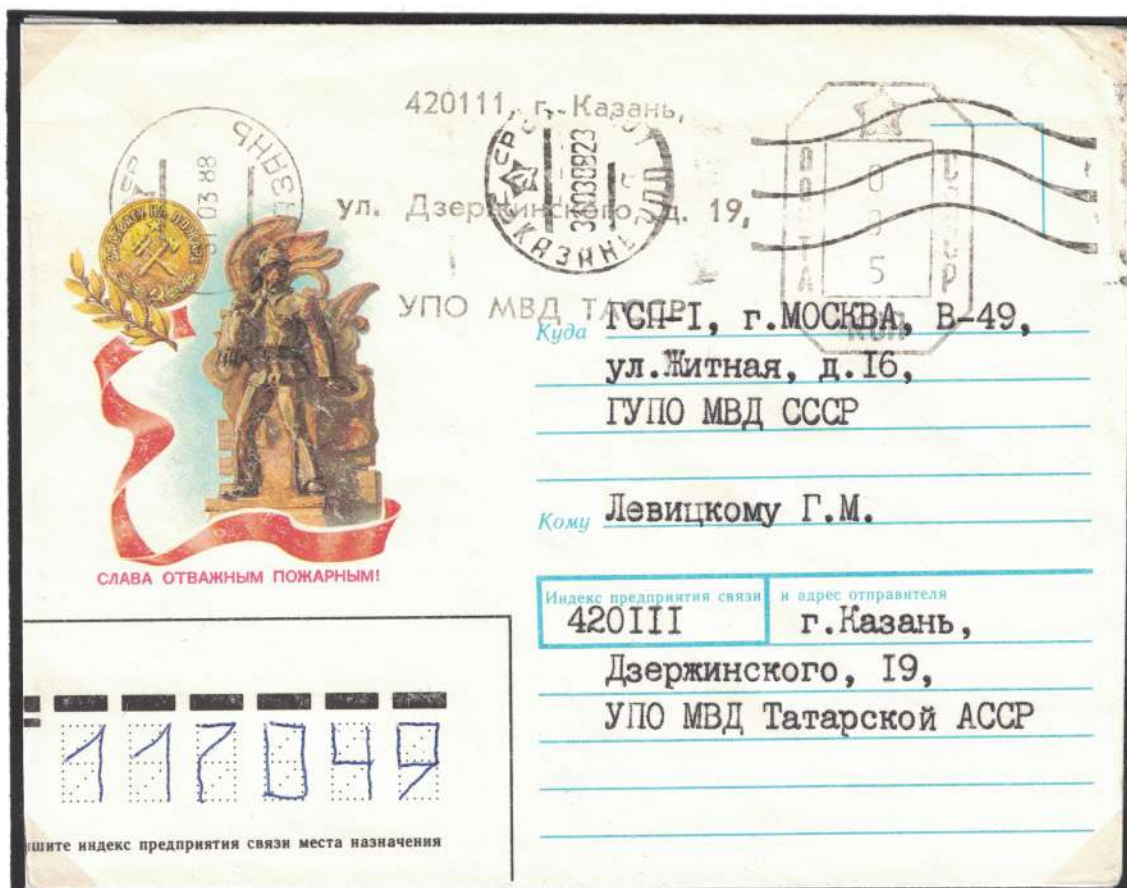 420111, г. Казань,
ул. Дзержинского, д. 19,
УПО МВД ТАССР
КАЗАНЬ
03 88
ПОЧТА
СССР
005
СЛАВА ОТВАЖНЫМ ПОЖАРНЫМ!
Куда ГСП-I, г.МОСКВА, В-49,
ул.Житная, д.I6,
ГУПО МВД СССР
Кому Левицкому Г.М.
Индекс предприятия связи и адрес отправителя
420III г.Казань,
Дзержинского, I9,
УПО МВД Татарской АССР
117049
шите индекс предприятия связи места назначения